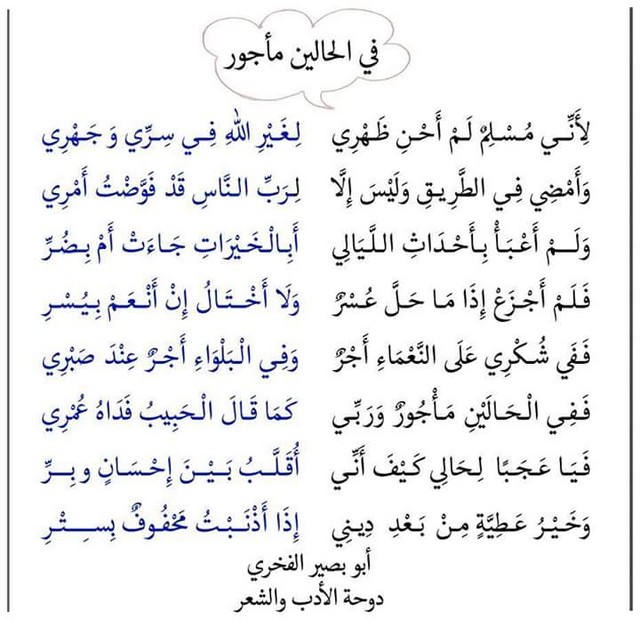 في الحالين مأجور
لِأَنِّي مُسْلِمٌ لَمْ أَحْنِ ظَهْرِي لِغَيْرِ اللهِ فِي سِرِّي وَ جَهْرِي
وَأَمْضِي فِي الطَّرِيقِ وَلَيْسَ إِلَّا لِرَبِّ النَّاسِ قَدْ فَوَّضْتُ أَمْرِي
وَلَمْ أَعْبَأْ بِأَحْدَاثِ اللَّيَالِي أَبِالْخَيْرَاتِ جَاءَتْ أَمْ بِضُرِّ
فَلَمْ أَجْزَعْ إِذَا مَا حَلَّ عُسْرٌ وَلَا أَخْتَالُ إِنْ أَنْعَمْ بِيُسْرِ
فَفِي شُكْرِي عَلَى النَّعْمَاءِ أَجْرٌ وَفِي الْبَلْوَاءِ أَجْرٌ عِنْدَ صَبْرِي
فَفِي الْحَالَيْنِ مَأْجُورٌ وَرَبِّي كَمَا قَالَ الْحَبِيبُ فَدَاهُ عُمْرِي
فَيَا عَجَبًا لِحَالِي كَيْفَ أَنِّي أُقَلَّبُ بَيْنَ إِحْسَانٍ وبِرِّ
وَخَيْرُ عَطِيَّةٍ مِنْ بَعْدِ دِينِي إِذَا أَذْنَبْتُ مَحْفُوفٌ بِسِتْرِ
أبو بصير الفخري
دوحة الأدب والشعر